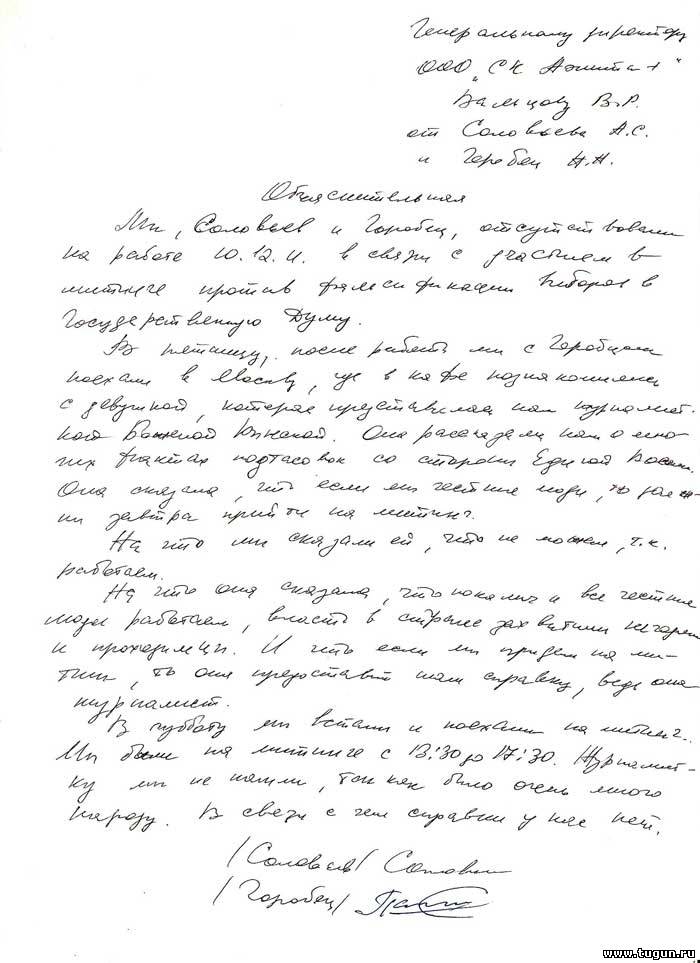 Генеральному директору
ООО "СК Аэлита+"
В.Р.
от Соловьева А.С.
и Горобец Н.Н.
Объяснительная
Мы, Соловьев и Горобец, отсутствовали
на работе 10.12.11. в связи с участием в
митинге против фальсификации выборов в
Государственную Думу.
В пятницу, после работы мы с Горобцом
поехали в Москву, где в кафе познакомились
с девушкой, которая представилась нам журналист-
кой Боженой. Она рассказала нам о мно-
гих фактах подтасовок со стороны Единой России.
Она сказала, что если мы честные люди, то долж-
ны завтра прийти на митинг.
На что мы сказали ей, что не можем, т.к.
работаем.
На что она сказала, что пока мы и все честные
люди работаем, власть в стране захватили негодяи
и проходимцы. И что если мы придем на ми-
тинг, то она предоставит нам справку, ведь она
журналист.
В субботу мы встали и поехали на митинг.
Мы были на митинге с 13:30 до 17:30. Журналист-
ку мы не нашли, так как было очень много
народу. В связи с чем справки у нас нет.
/Соловьев/
/Горобец/
www.tugun.ru